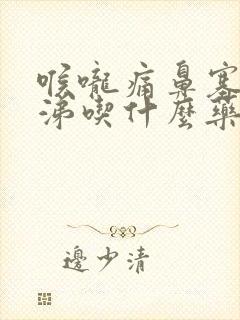 喉嚨痛鼻塞
涕喫什麼藥
邊少清